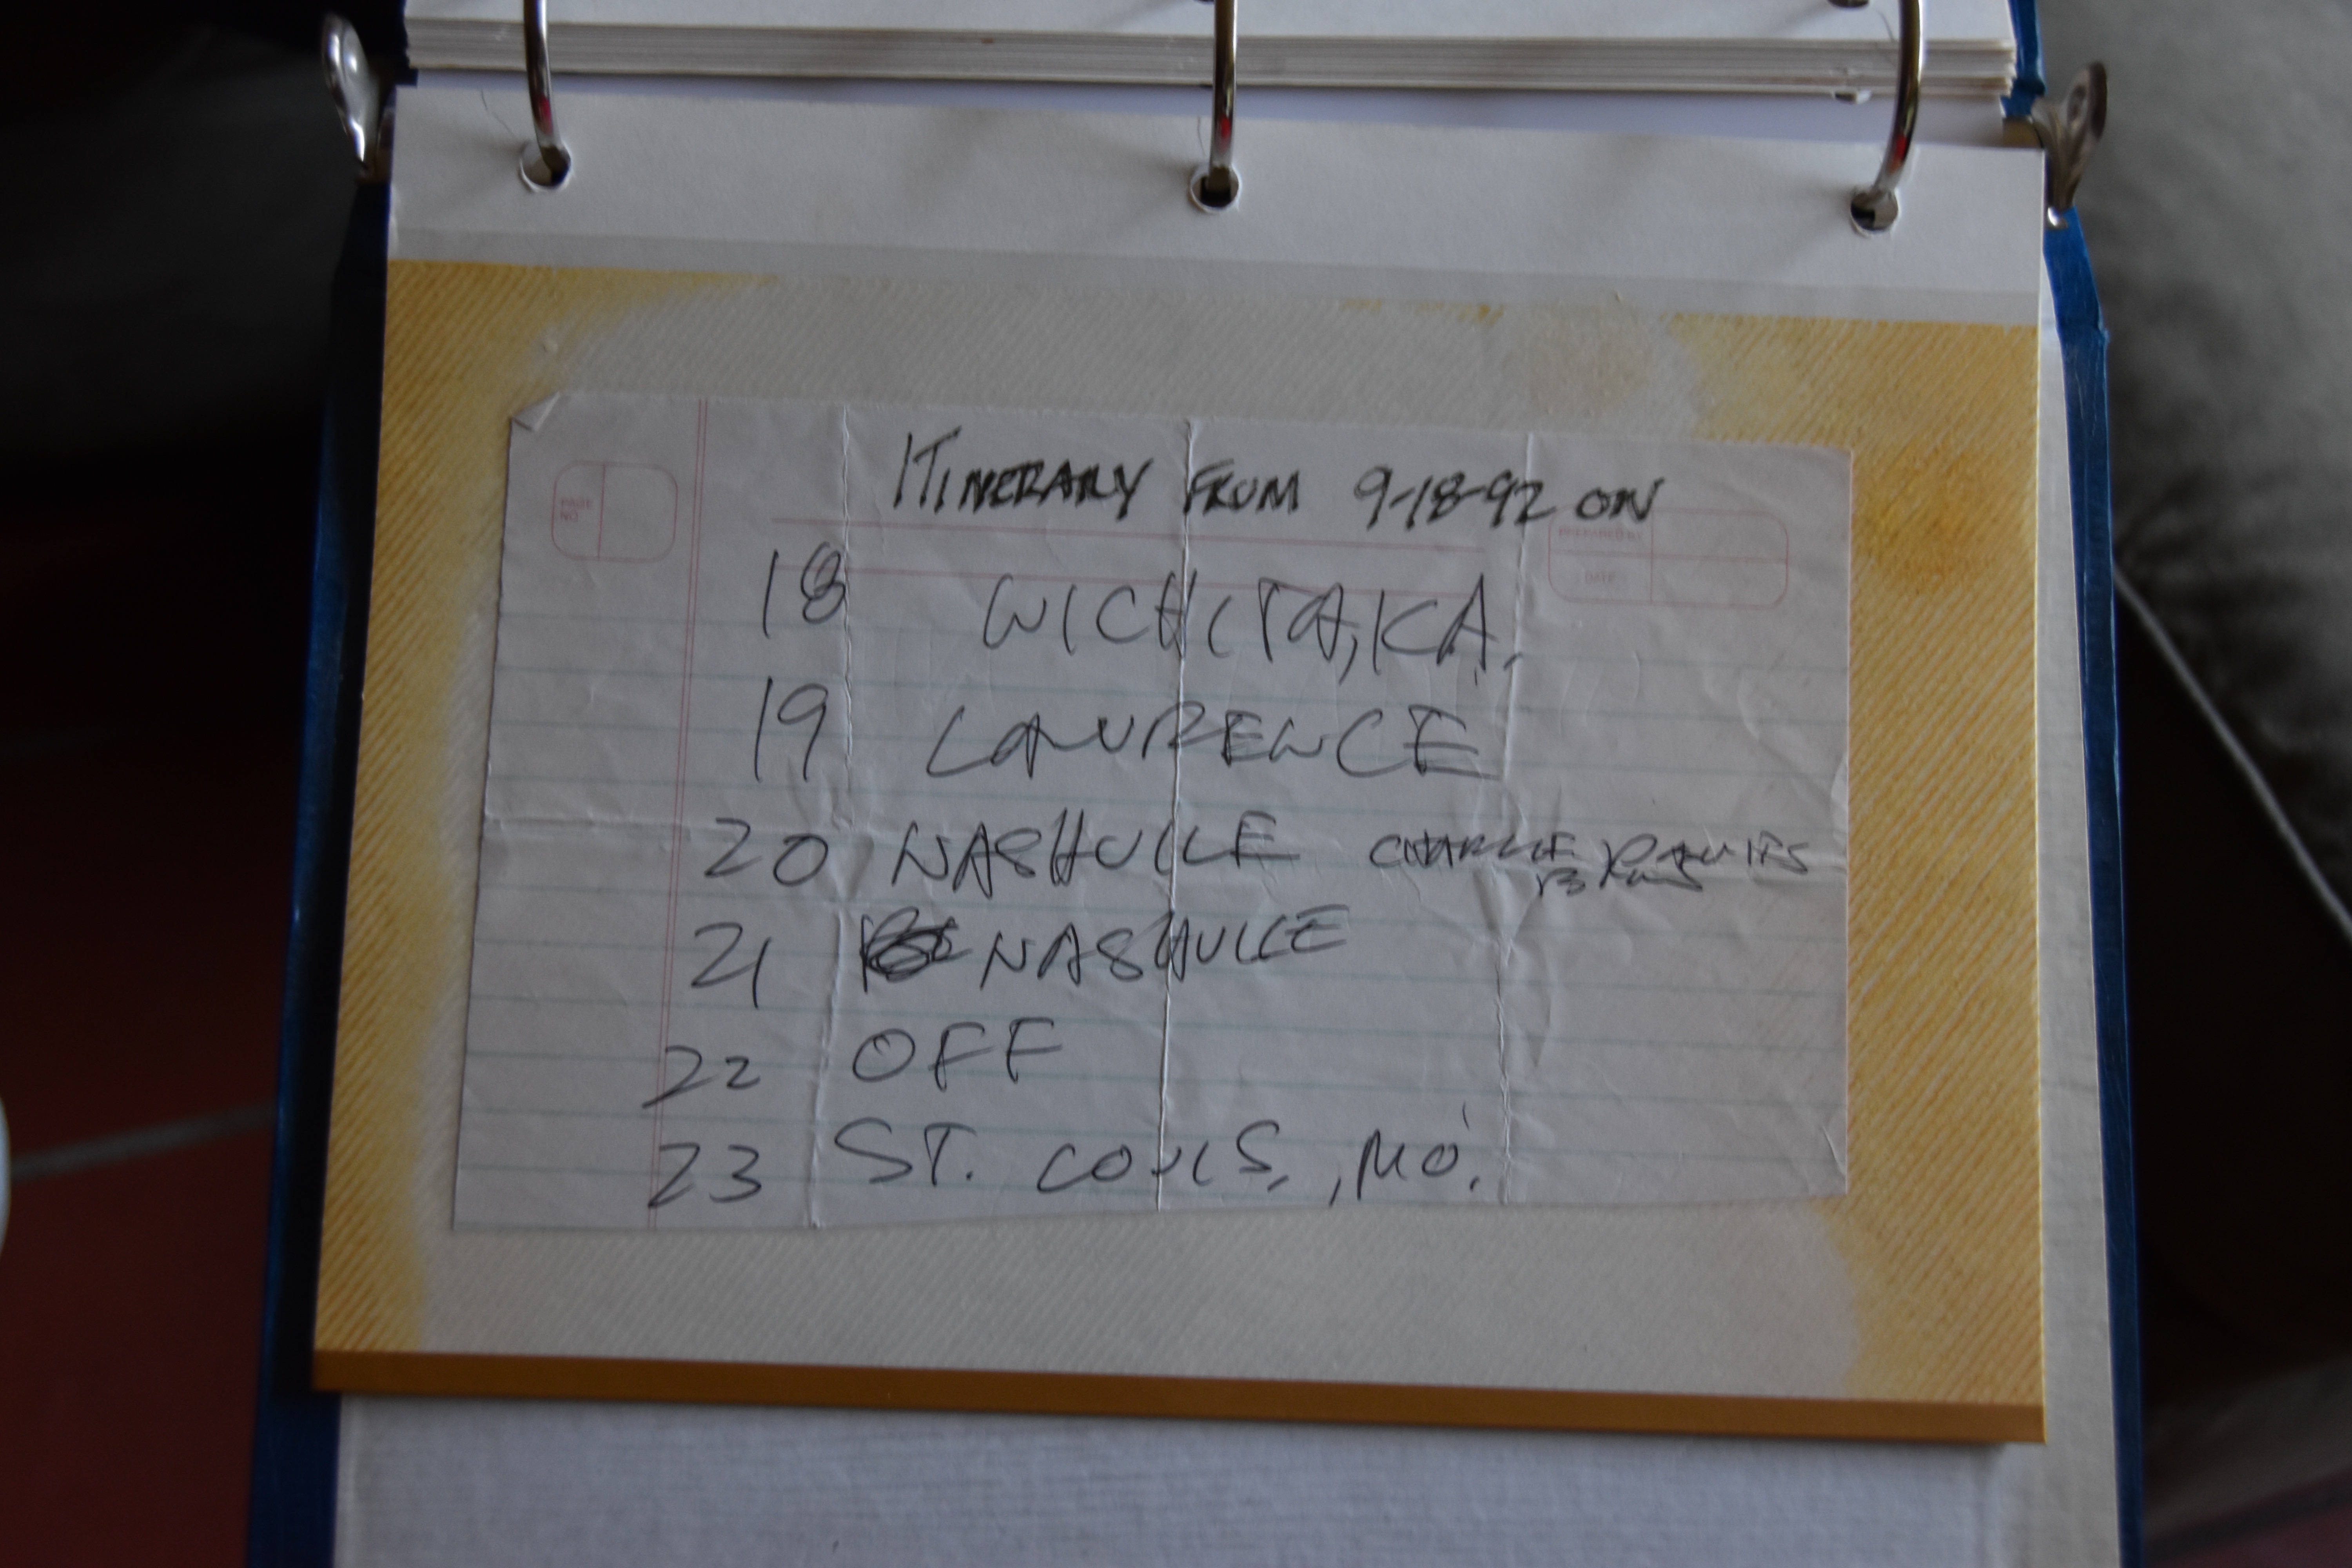 ITINERARY FROM 9-18-92 ON
PAGE NO.
PREPARED BY
DATE
18 WICHITA, KA.
19 LAWRENCE
20 NASHVILLE CHARLIE
21 NASHVILLE
22 OFF
23 ST. LOUIS, MO.